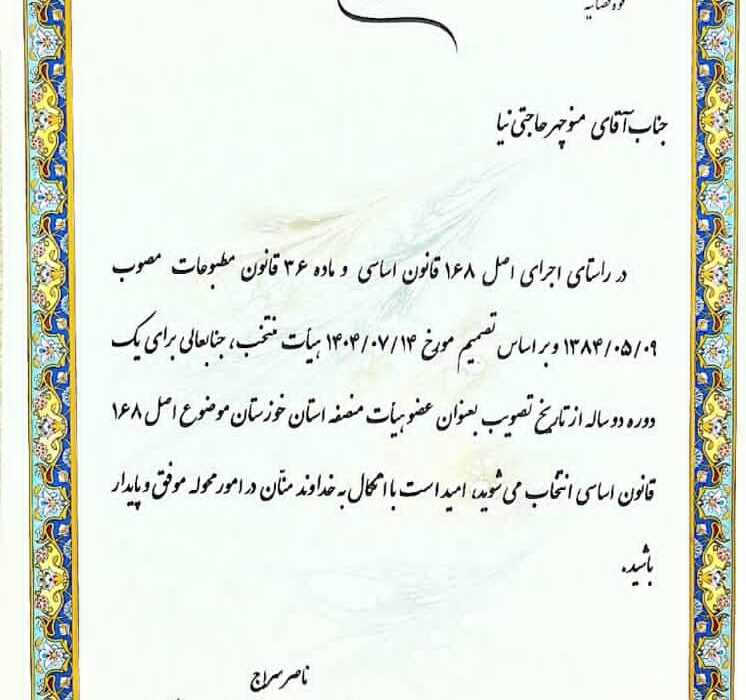 قوه قضاییه
جناب آقای منوچهر حاجتی نیا
در راستای اجرای اصل ۱۶۸ قانون اساسی و ماده ۳۶ قانون مطبوعات مصوب
۱۳۸۴/۰۵/۰۹ و بر اساس تصمیم مورخ ۱۴۰۴/۰۷/۱۴ هیأت منتخب، جنابعالی برای یک
دوره دو ساله از تاریخ تصویب بعنوان عضو هیأت منصفه استان خوزستان موضوع اصل ۱۶۸
قانون اساسی انتخاب می شوید، امید است با اتکال به خداوند منّان در امور محوله موفق و پایدار
باشید.
ناصر سراج